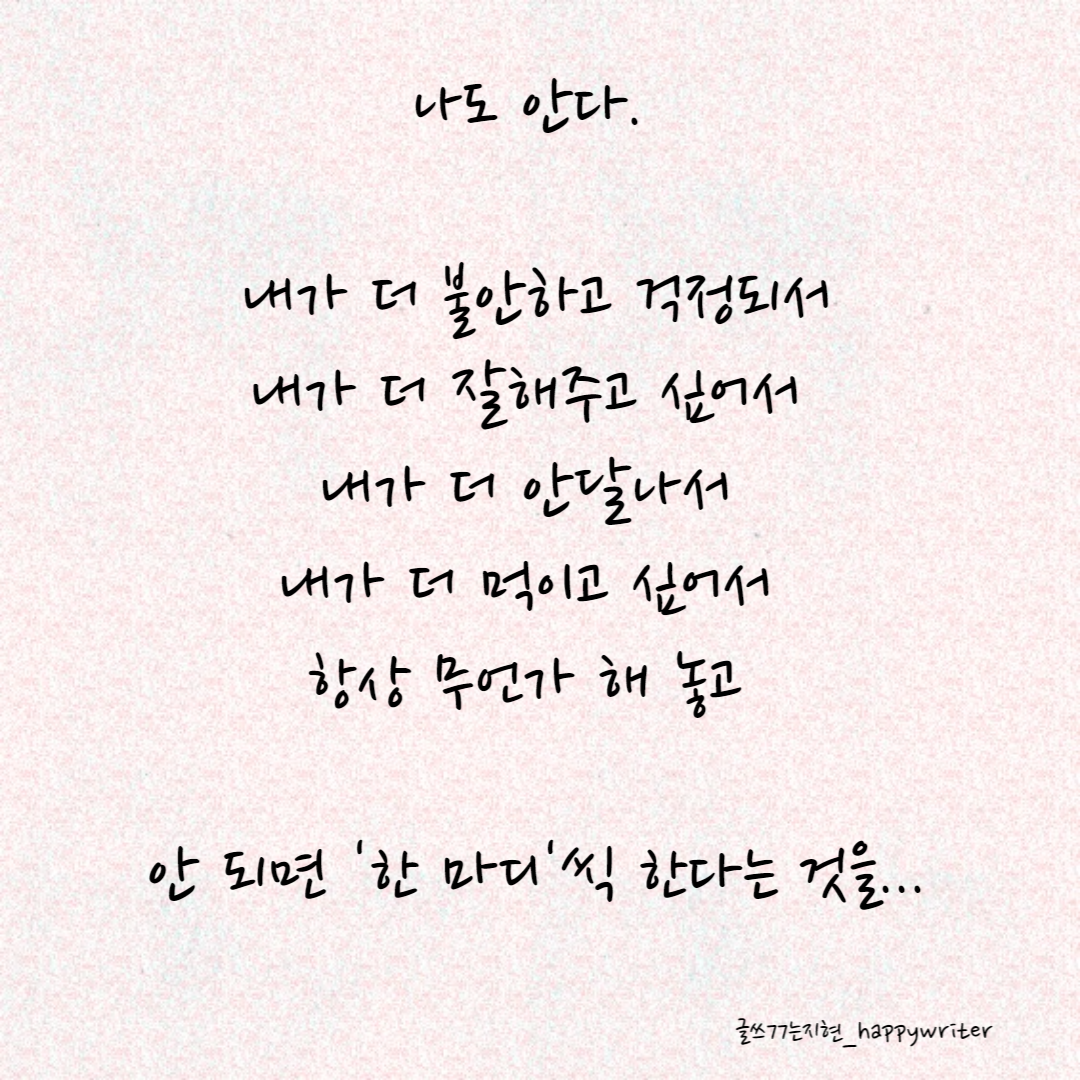 나도 안다.
내가 더 불안하고 걱정되서
내가 더 잘해주고 싶어서
내가 더 안달나서
내가 더 먹이고 싶어서
항상 무언가 해 놓고
안 되면 '한 마디'씩 한다는 것을...
글쓰77는지현_happywriter